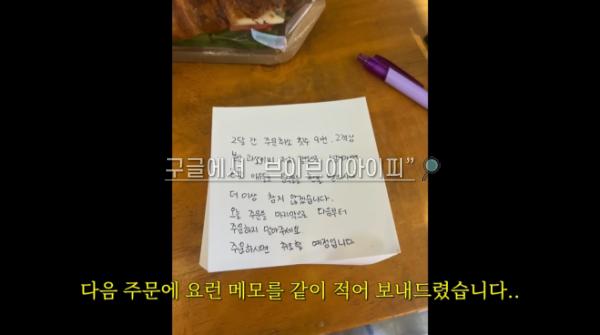 2달 간 주문취소 횟수 9번. 고객님
구글에서 "브이브이아이피"
더 이상 참지 않겠습니다.
오늘 주문을 마지막으로 다음부터
주문하지 말아주세요
주문하시면 취소할 예정입니다
다음 주문에 요런 메모를 같이 적어 보내드렸습니다..